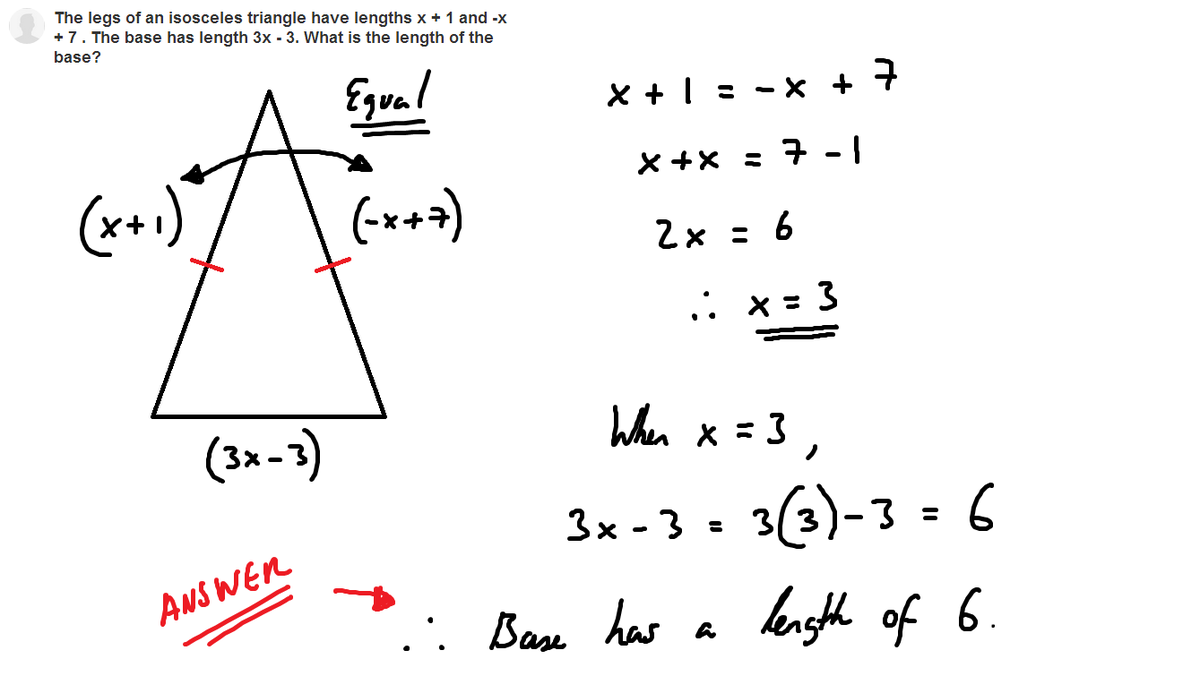 The legs of an isosceles triangle have lengths x + 1 and -x
+ 7 . The base has length 3x - 3. What is the length of the
base?
Equal
(x+1)
(-x+7)
(3x-3)
x + 1 = -x + 7
x + x = 7 - 1
2x = 6
∴ x = 3
When x = 3,
3x - 3 = 3(3) - 3 = 6
ANSWER
∴ Base has a length of 6.